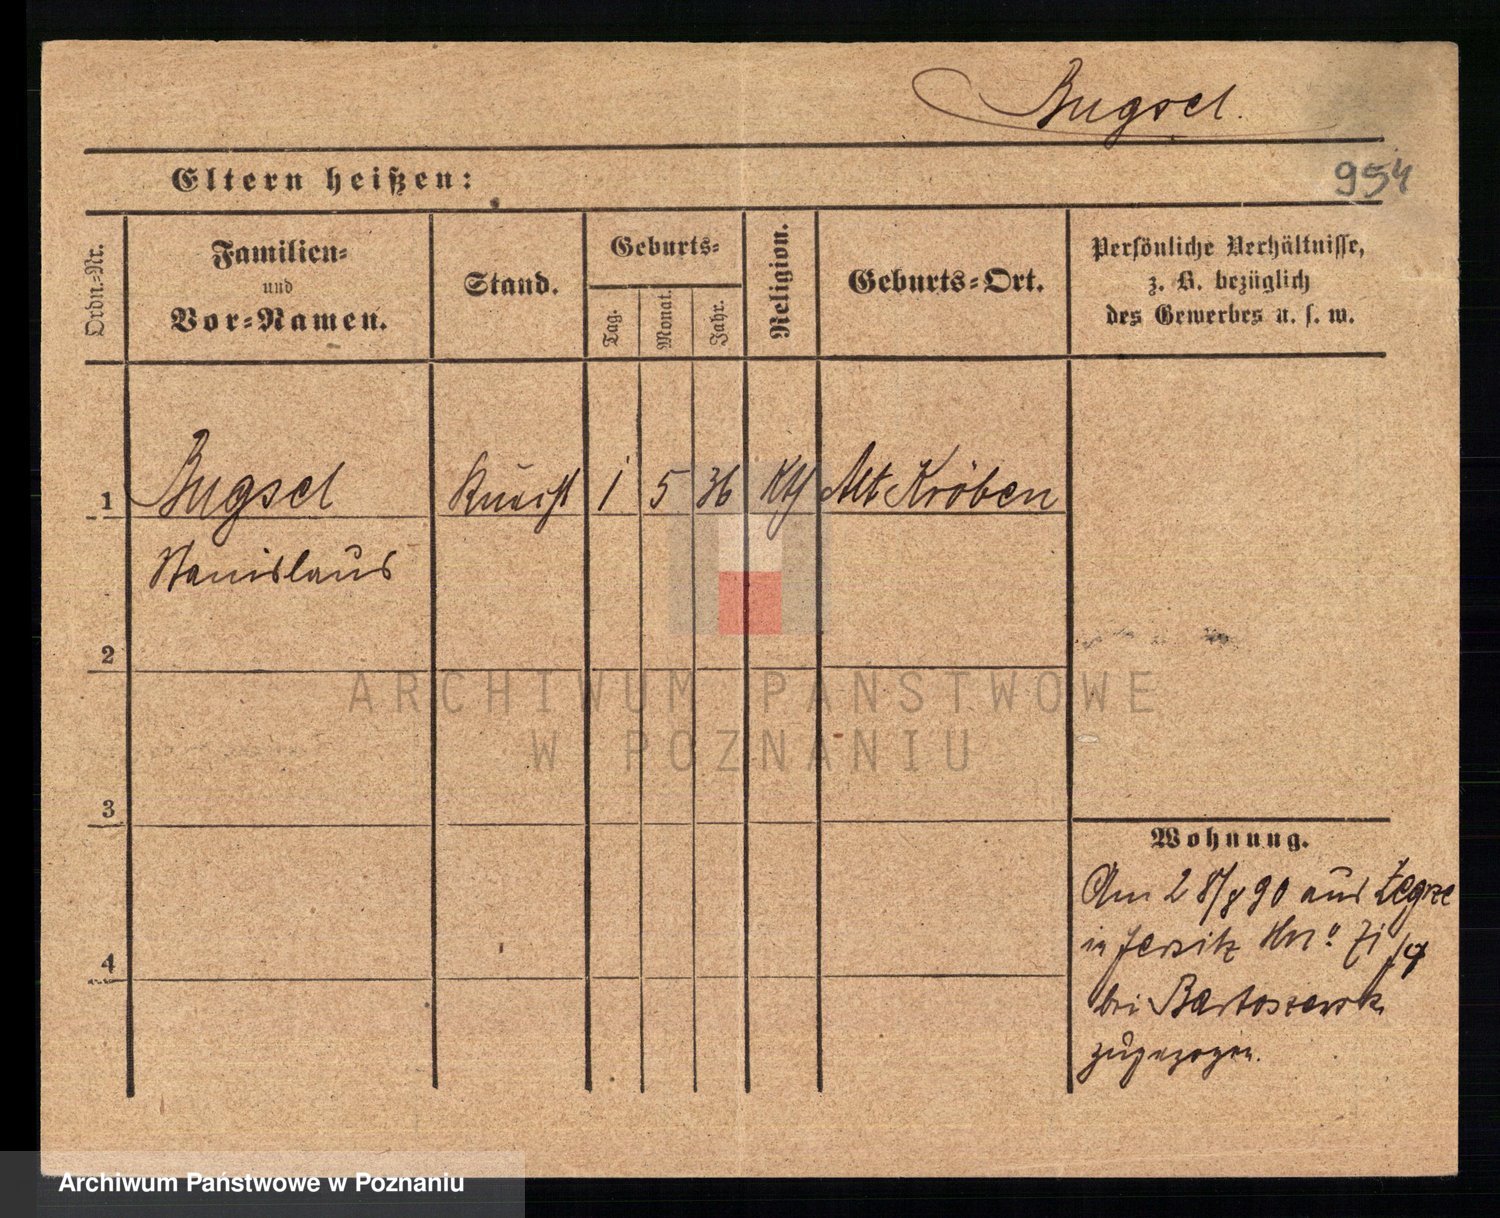 Bugsel.
954
Eltern heißen:
Ordn.-Nr.
Familien-
und
Vor-Namen.
Stand.
Geburts-
Tag.
Monat.
Jahr.
Religion.
Geburts-Ort.
Persönliche Verhältnisse,
z. B. bezüglich
des Gewerbes u. s. w.
1 Bugsel Knecht 1 5 36 Kth Alt Kröben
Stanislaus
2
3
4
Wohnung.
Am 28/8 90 aus Żegrze
in Jersitz
bei
zugezogen.
ARCHIWUM PAŃSTWOWE
W POZNANIU
Archiwum Państwowe w Poznaniu